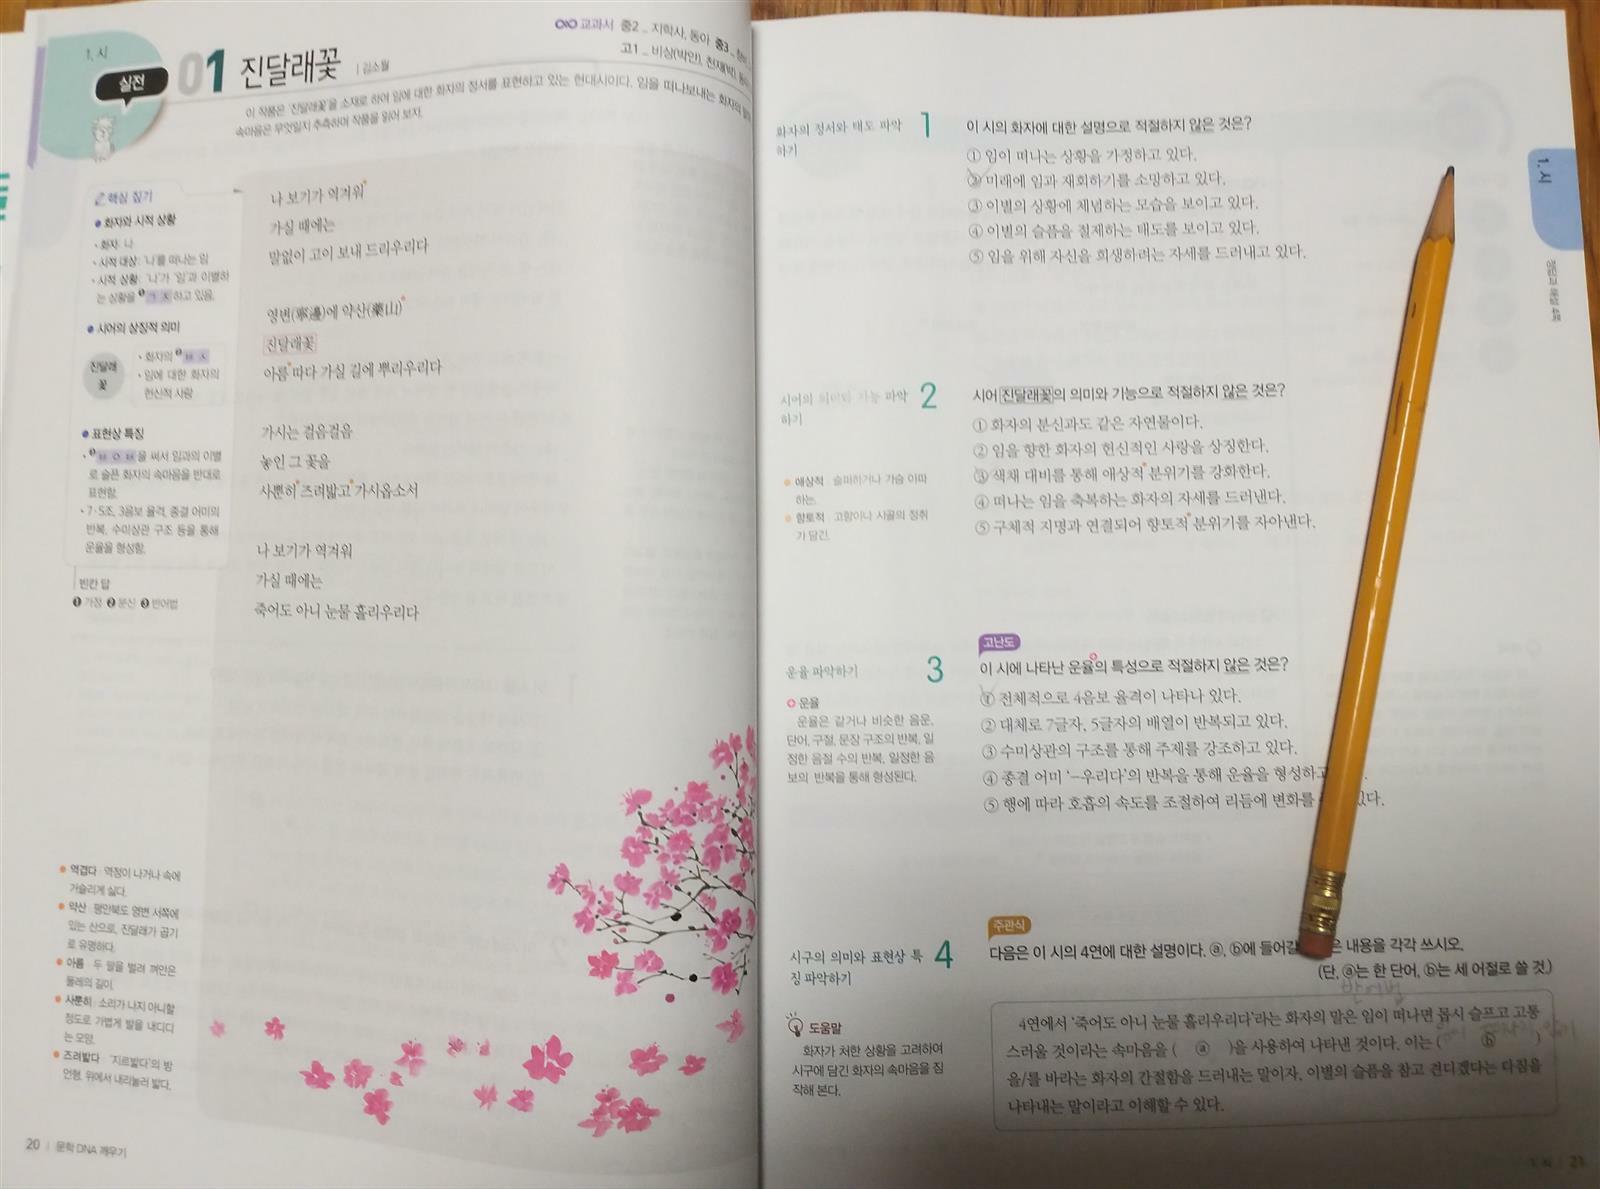 1. 시
실전
01 진달래꽃 | 김소월
교과서 중2 _ 지학사, 동아 중3 _
고1 _ 비상(박안), 천재(박),
이 작품은 '진달래꽃'을 소재로 하여 임에 대한 화자의 정서를 표현하고 있는 현대시이다. 임을 떠나보내는 화자의
속마음은 무엇일지 추측하며 작품을 읽어 보자.
핵심 짚기
● 화자와 시적 상황
• 화자: 나
• 시적 대상: '나'를 떠나는 임
• 시적 상황: '나'가 '임'과 이별하
는 상황을 ❶ ㄱ ㅈ 하고 있음.
● 시어의 상징적 의미
진달래
꽃
• 화자의 ❷ ㅂ ㅅ
• 임에 대한 화자의
헌신적 사랑
● 표현상 특징
• ❸ ㅂ ㅇ ㅂ 을 써서 임과의 이별
로 슬픈 화자의 속마음을 반대로
표현함.
• 7·5조, 3음보 율격, 종결 어미의
반복, 수미상관 구조 등을 통해
운율을 형성함.
빈칸 답
❶ 가정 ❷ 분신 ❸ 반어법
나 보기가 역겨워
가실 때에는
말없이 고이 보내 드리우리다
영변(寧邊)에 약산(藥山)
진달래꽃
아름 따다 가실 길에 뿌리우리다
가시는 걸음걸음
놓인 그 꽃을
사뿐히 즈려밟고 가시옵소서
나 보기가 역겨워
가실 때에는
죽어도 아니 눈물 흘리우리다
● 역겹다 : 역정이 나거나 속에
거슬리게 싫다.
● 약산 : 평안북도 영변 서쪽에
있는 산으로, 진달래가 곱기
로 유명하다.
● 아름 : 두 팔을 벌려 껴안은
둘레의 길이.
● 사뿐히 : 소리가 나지 아니할
정도로 가볍게 발을 내디디
는 모양.
● 즈려밟다 : '지르밟다'의 방
언형. 위에서 내리눌러 밟다.
20 | 문학 DNA 깨우기
화자의 정서와 태도 파악
하기
1 이 시의 화자에 대한 설명으로 적절하지 않은 것은?
① 임이 떠나는 상황을 가정하고 있다.
② 미래에 임과 재회하기를 소망하고 있다.
③ 이별의 상황에 체념하는 모습을 보이고 있다.
④ 이별의 슬픔을 절제하는 태도를 보이고 있다.
⑤ 임을 위해 자신을 희생하려는 자세를 드러내고 있다.
시어의 의미와 기능 파악
하기
2 시어 진달래꽃의 의미와 기능으로 적절하지 않은 것은?
① 화자의 분신과도 같은 자연물이다.
② 임을 향한 화자의 헌신적인 사랑을 상징한다.
③ 색채 대비를 통해 애상적 분위기를 강화한다.
④ 떠나는 임을 축복하는 화자의 자세를 드러낸다.
⑤ 구체적 지명과 연결되어 향토적 분위기를 자아낸다.
● 애상적 : 슬퍼하거나 가슴 아파
하는.
● 향토적 : 고향이나 시골의 정취
가 담긴.
운율 파악하기
고난도
3 이 시에 나타난 운율의 특성으로 적절하지 않은 것은?
① 전체적으로 4음보 율격이 나타나 있다.
② 대체로 7글자, 5글자의 배열이 반복되고 있다.
③ 수미상관의 구조를 통해 주제를 강조하고 있다.
④ 종결 어미 '-우리다'의 반복을 통해 운율을 형성하고
⑤ 행에 따라 호흡의 속도를 조절하여 리듬에 변화를 있다.
운율
운율은 같거나 비슷한 음운,
단어, 구절, 문장 구조의 반복, 일
정한 음절 수의 반복, 일정한 음
보의 반복을 통해 형성된다.
시구의 의미와 표현상 특
징 파악하기
주관식
4 다음은 이 시의 4연에 대한 설명이다. ⓐ, ⓑ에 들어갈 내용을 각각 쓰시오.
(단, ⓐ는 한 단어, ⓑ는 세 어절로 쓸 것.)
반어법
4연에서 '죽어도 아니 눈물 흘리우리다'라는 화자의 말은 임이 떠나면 몹시 슬프고 고통
스러울 것이라는 속마음을 ( ⓐ )을 사용하여 나타낸 것이다. 이는 ( ⓑ )
을/를 바라는 화자의 간절함을 드러내는 말이자, 이별의 슬픔을 참고 견디겠다는 다짐을
나타내는 말이라고 이해할 수 있다.
도움말
화자가 처한 상황을 고려하여
시구에 담긴 화자의 속마음을 짐
작해 본다.
1. 시
정답과 해설 4쪽
1. 시 | 21